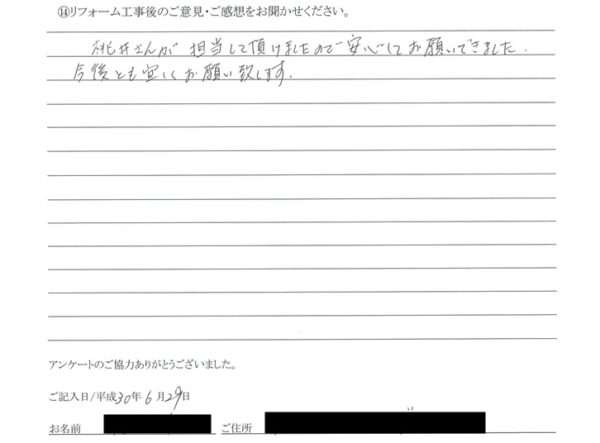 ⑭リフォーム工事後のご意見・ご感想をお聞かせください。
桃井さんが 担当して頂けましたので安心してお願いできました.
今後とも宜しくお願い致します.
アンケートのご協力ありがとうございました。
ご記入日/平成30年6月29日
お名前 ご住所